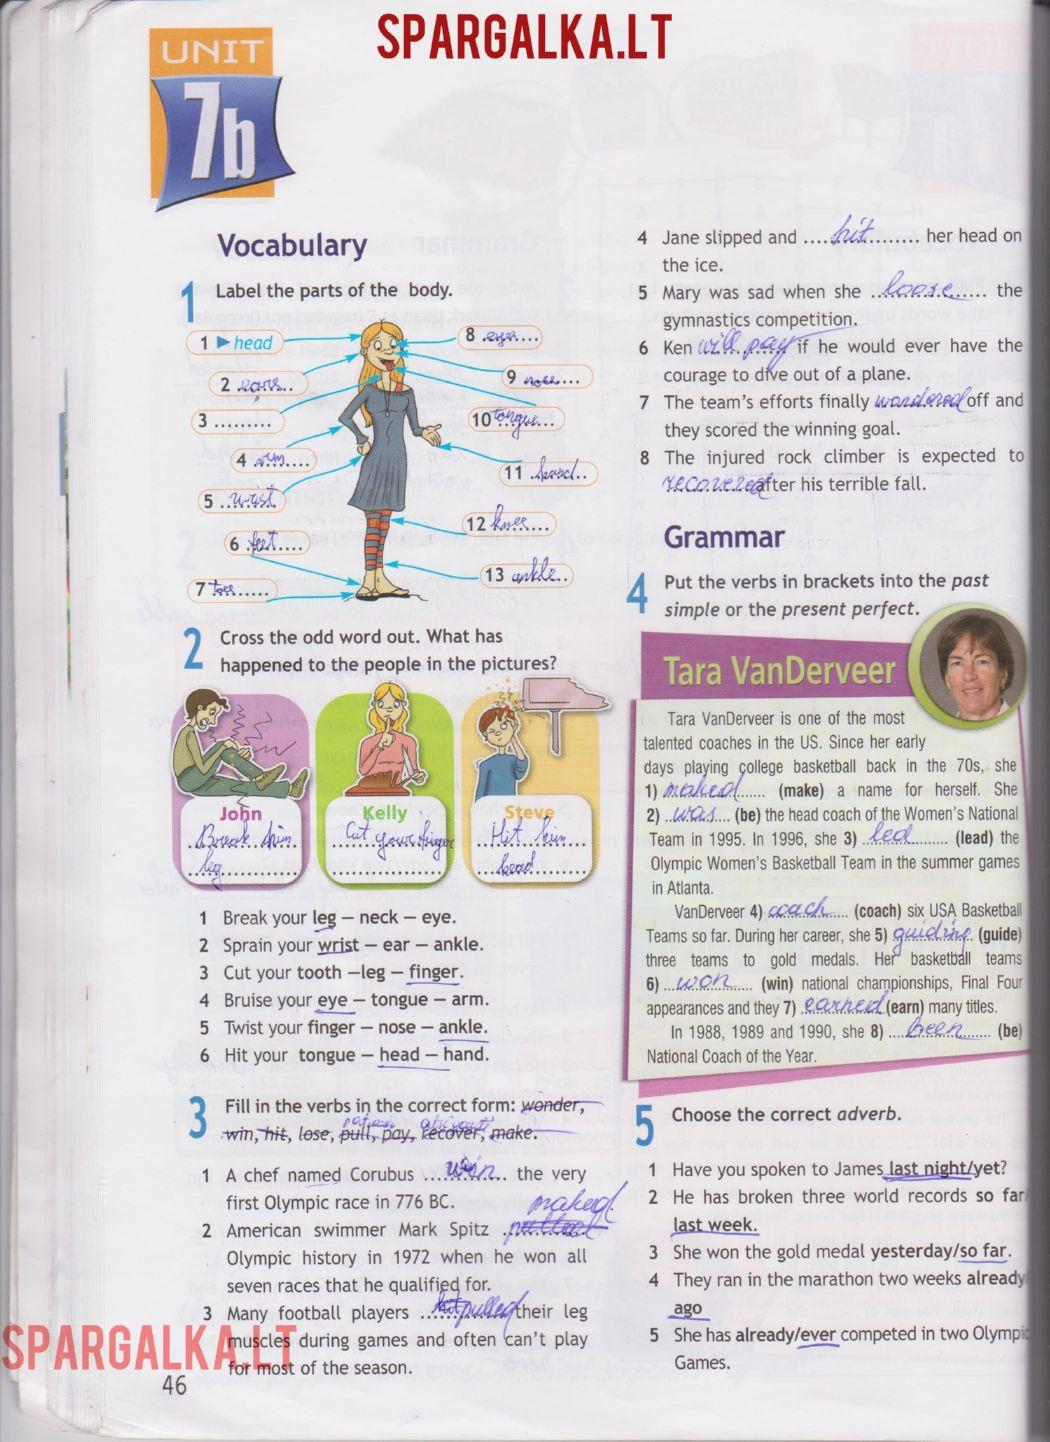 SPARGALKA.LT
UNIT
7b
Vocabulary
1 Label the parts of the body.
1 ▶ head
2 ears
3 .........
4 arm
5 wrist
6 feet
7 toes
8 eyes
9 nose
10 tongue
11 hand
12 knee
13 ankle
2 Cross the odd word out. What has
happened to the people in the pictures?
John
Break him
leg
Kelly
Cut your finger
Steve
Hit him
head
1 Break your leg – neck – eye.
2 Sprain your wrist – ear – ankle.
3 Cut your tooth –leg – finger.
4 Bruise your eye – tongue – arm.
5 Twist your finger – nose – ankle.
6 Hit your tongue – head – hand.
3 Fill in the verbs in the correct form: wonder,
win, hit, lose, pull, pay, recover, make.
1 A chef named Corubus win the very
first Olympic race in 776 BC.
maked
2 American swimmer Mark Spitz pulled
Olympic history in 1972 when he won all
seven races that he qualified for.
3 Many football players hit pulled their leg
muscles during games and often can't play
for most of the season.
46
SPARGALKA.LT
4 Jane slipped and hit her head on
the ice.
5 Mary was sad when she loose the
gymnastics competition.
6 Ken will pay if he would ever have the
courage to dive out of a plane.
7 The team's efforts finally wondered off and
they scored the winning goal.
8 The injured rock climber is expected to
recovered after his terrible fall.
Grammar
4 Put the verbs in brackets into the past
simple or the present perfect.
Tara VanDerveer
Tara VanDerveer is one of the most
talented coaches in the US. Since her early
days playing college basketball back in the 70s, she
1) maked (make) a name for herself. She
2) was (be) the head coach of the Women's National
Team in 1995. In 1996, she 3) led (lead) the
Olympic Women's Basketball Team in the summer games
in Atlanta.
VanDerveer 4) coach (coach) six USA Basketball
Teams so far. During her career, she 5) guiding (guide)
three teams to gold medals. Her basketball teams
6) won (win) national championships, Final Four
appearances and they 7) earned (earn) many titles.
In 1988, 1989 and 1990, she 8) been (be)
National Coach of the Year.
5 Choose the correct adverb.
1 Have you spoken to James last night/yet?
2 He has broken three world records so far/
last week.
3 She won the gold medal yesterday/so far.
4 They ran in the marathon two weeks already/
ago
5 She has already/ever competed in two Olympic
Games.